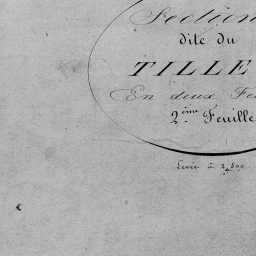 Section
dite du
TILLE
En deux Fe
2.ème Feuille
Levée à 2,500